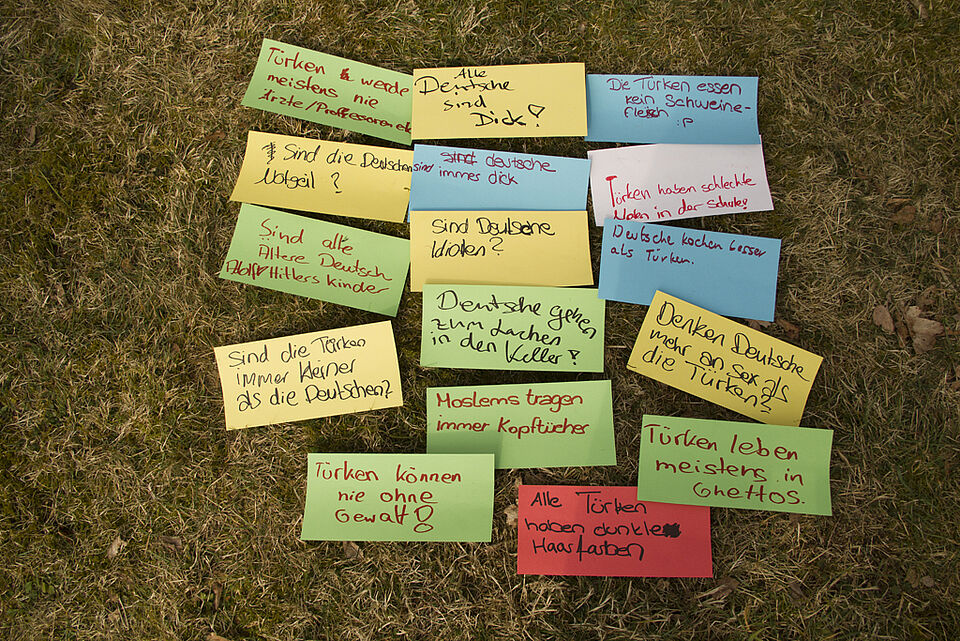 Türken werde
meistens nie
Ärzte/Professoren etc
Alle
Deutsche
sind
Dick!
Die Türken essen
kein Schweine-
fleisch :P
Sind die Deutschen
Notgeil ?
sind deutsche
sind immer dick
Türken haben schlechte
Noten in der Schule!
Sind alte
Ältere Deutsch
Hitlers Kinder
Sind Deutsche
Idioten?
Deutsche kochen besser
als Türken.
Deutsche gehen
zum Lachen
in den Keller!
Denken Deutsche
mehr an Sex als
die Türken?
Sind die Türken
immer kleiner
als die Deutschen?
Moslems tragen
immer Kopftücher
Türken leben
meistens in
Ghettos.
Türken können
nie ohne
Gewalt!
Alle Türken
haben dunkle
Haarfarben